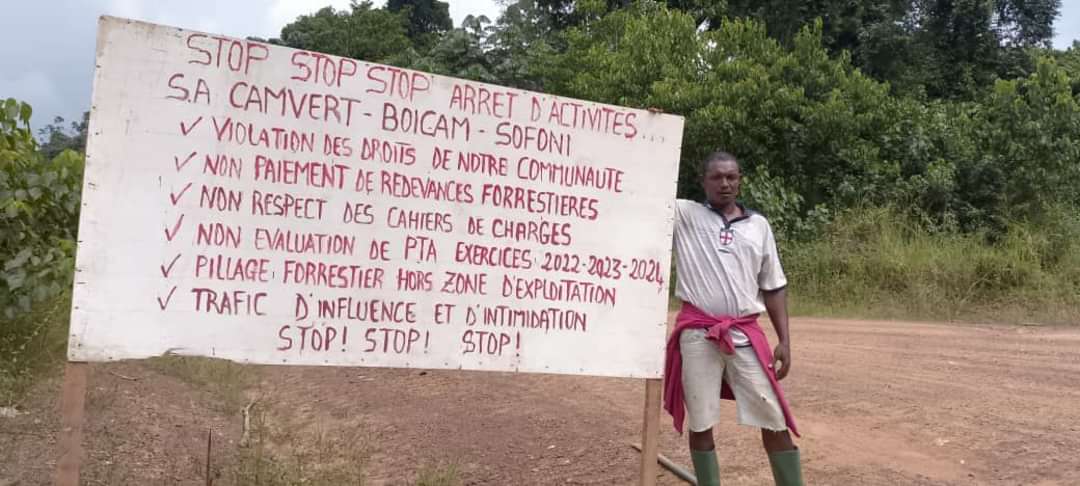 STOP STOP STOP ARRET D'ACTIVITES...
S.A CAMVERT - BOICAM - SOFONI
✓ VIOLATION DES DROITS DE NOTRE COMMUNAUTE
✓ NON PAIEMENT DE REDEVANCES FORRESTIERES
✓ NON RESPECT DES CAHIERS DE CHARGES
✓ NON EVALUATION DE PTA EXERCICES 2022-2023-2024
✓ PILLAGE FORRESTIER HORS ZONE D'EXPLOITATION
✓ TRAFIC D'INFLUENCE ET D'INTIMIDATION
STOP! STOP! STOP!